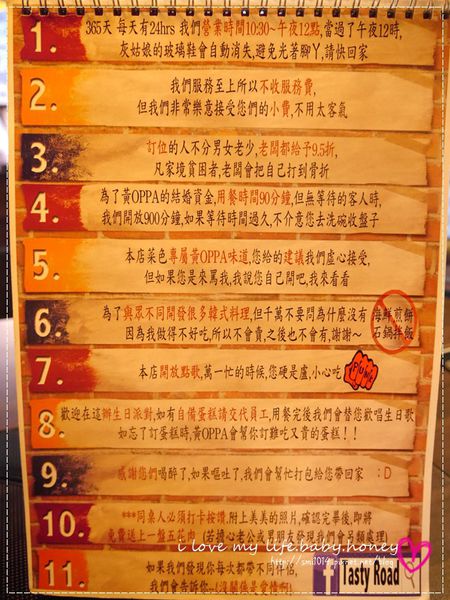 1.
365天 每天有24hrs 我們營業時間10:30~午夜12點,當過了午夜12時,
灰姑娘的玻璃鞋會自動消失,避免光著腳丫,請快回家
2.
我們服務至上所以不收服務費,
但我們非常樂意接受您們的小費,不用太客氣
3.
訂位的人不分男女老少,老闆都給予9.5折,
凡家境貧困者,老闆會把自己打到骨折
4.
為了黃OPPA的結婚資金,用餐時間90分鐘,但無等待的客人時,
我們開放900分鐘,如果等待時間過久,不介意您去洗碗收盤子
5.
本店菜色專屬黃OPPA味道,您給的建議我們虛心接受,
但如果您是來罵我,我說您自己開吧,我來看看
6.
為了與眾不同開發很多韓式料理,但千萬不要問為什麼沒有 海鮮煎餅
因為我做得不好吃,所以不會賣,之後也不會有,謝謝~ 石鍋拌飯
7.
本店開放點歌,萬一忙的時候,您硬是盧,小心吃
8.
歡迎在這辦生日派對,如有自備蛋糕請交代員工,用餐完後我們會替您歡唱生日歌
如忘了訂蛋糕時,黃OPPA會幫你訂難吃又貴的蛋糕!!
9.
感謝您們喝醉了,如果嘔吐了,我們會幫忙打包給您帶回家 :D
10.
***同桌人必須打卡按讚,附上美美的照片,確認完畢後,即將
免費送上一盤五花肉 (若擔心老公或男朋友發現我們會另類處理)
i love my life.baby.honey
11.
如果我們發現你每次都帶不同伴,
我們會告訴你
f Tasty Road